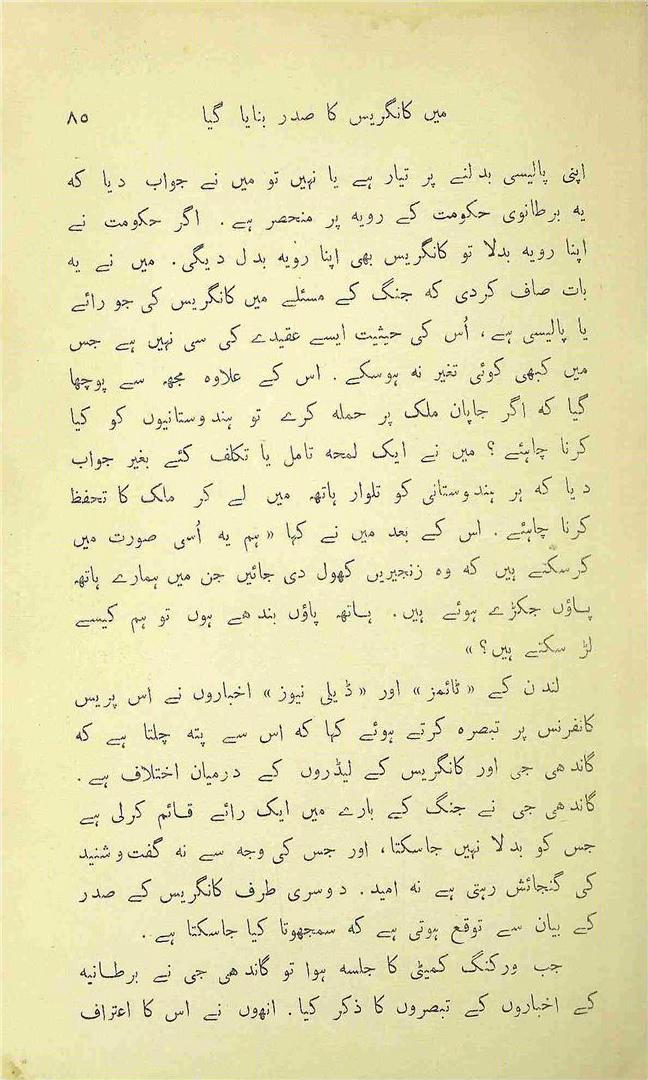 میں کانگریس کا صدر بنایا گیا ۸۵
اپنی پالیسی بدلنے پر تیار ہے یا نہیں تو میں نے جواب دیا کہ
یہ برطانوی حکومت کے رویہ پر منحصر ہے. اگر حکومت نے
اپنا رویہ بدلا تو کانگریس بھی اپنا رویہ بدل دیگی. میں نے یہ
بات صاف کردی کہ جنگ کے مسئلے میں کانگریس کی جو رائے
یا پالیسی ہے، اُس کی حیثیت ایسے عقیدے کی سی نہیں ہے جس
میں کبھی کوئی تغیر نہ ہوسکے. اس کے علاوہ مجھ سے پوچھا
گیا کہ اگر جاپان ملک پر حملہ کرے تو ہندوستانیوں کو کیا
کرنا چاہئے؟ میں نے ایک لمحہ تامل یا تکلف کئے بغیر جواب
دیا کہ ہر ہندوستانی کو تلوار ہاتھ میں لے کر ملک کا تحفظ
کرنا چاہئے. اس کے بعد میں نے کہا «ہم یہ اُسی صورت میں
کرسکتے ہیں کہ وہ زنجیریں کھول دی جائیں جن میں ہمارے ہاتھ
پاؤں جکڑے ہوئے ہیں. ہاتھ پاؤں بندھے ہوں تو ہم کیسے
لڑ سکتے ہیں؟»
لندن کے «ٹائمز» اور «ڈیلی نیوز» اخباروں نے اس پریس
کانفرنس پر تبصرہ کرتے ہوئے کہا کہ اس سے پتہ چلتا ہے کہ
گاندھی جی اور کانگریس کے لیڈروں کے درمیان اختلاف ہے.
گاندھی جی نے جنگ کے بارے میں ایک رائے قائم کرلی ہے
جس کو بدلا نہیں جاسکتا، اور جس کی وجہ سے نہ گفت و شنید
کی گنجائش رہتی ہے نہ امید. دوسری طرف کانگریس کے صدر
کے بیان سے توقع ہوتی ہے کہ سمجھوتا کیا جاسکتا ہے.
جب ورکنگ کمیٹی کا جلسہ ہوا تو گاندھی جی نے برطانیہ
کے اخباروں کے تبصروں کا ذکر کیا. انھوں نے اس کا اعتراف